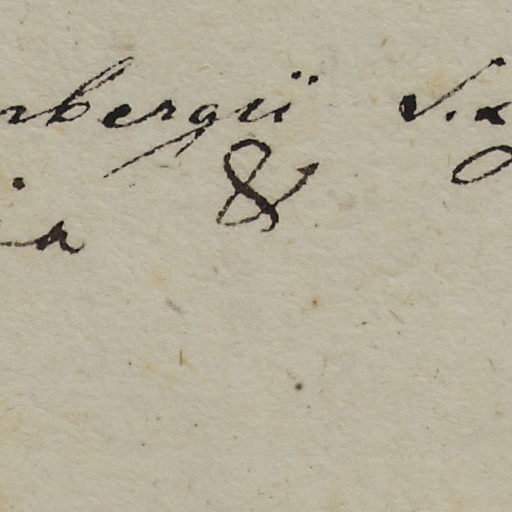 rbergii S.
ia &